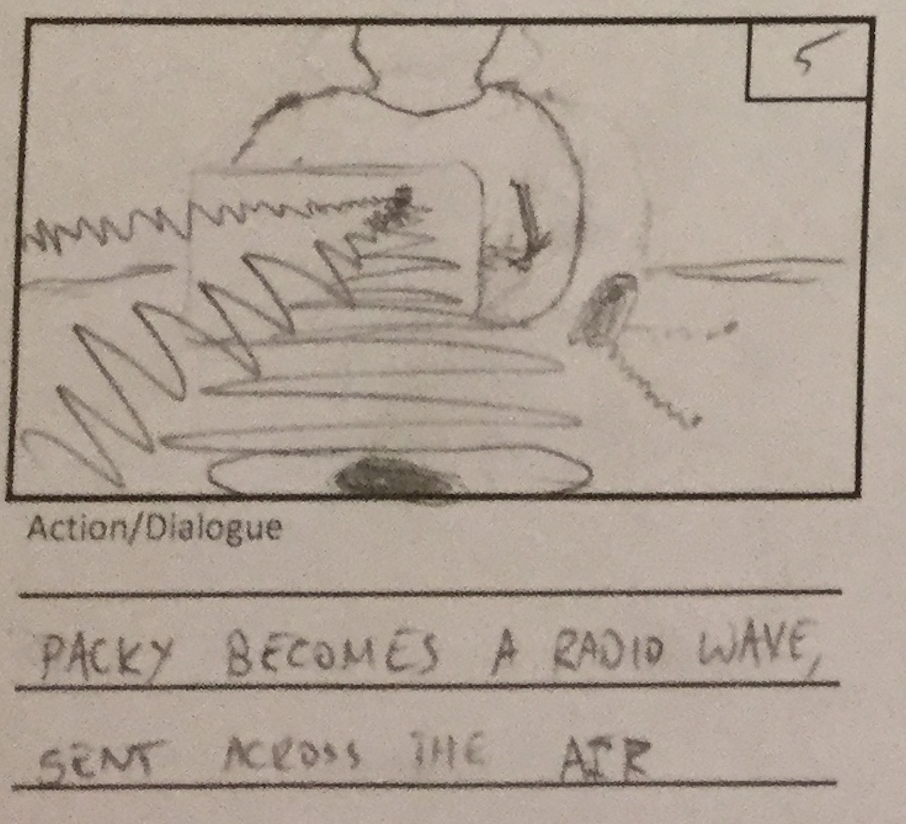 5
Action/Dialogue
PACKY BECOMES A RADIO WAVE,
SENT ACROSS THE AIR